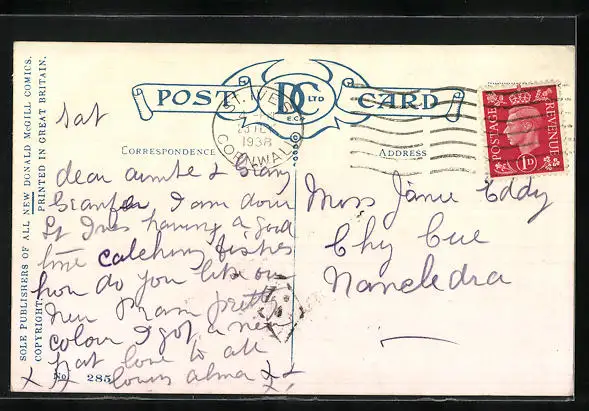 SOLE PUBLISHERS OF ALL NEW DONALD McGILL COMICS.
COPYRIGHT. PRINTED IN GREAT BRITAIN.
POST CARD
DC LTD
ST. IVES
1938
CORNWALL
POSTAGE REVENUE
1D
CORRESPONDENCE
ADDRESS
Sat
dear auntie & Grany
Granfer I am down
St Ives having a good
time catching fishes
how do you like our
new Pram pretty
colour I got a new
hat love to all
x x love alma x x
No. 285
Miss Janie Eddy
Chy Cue
Nancledra